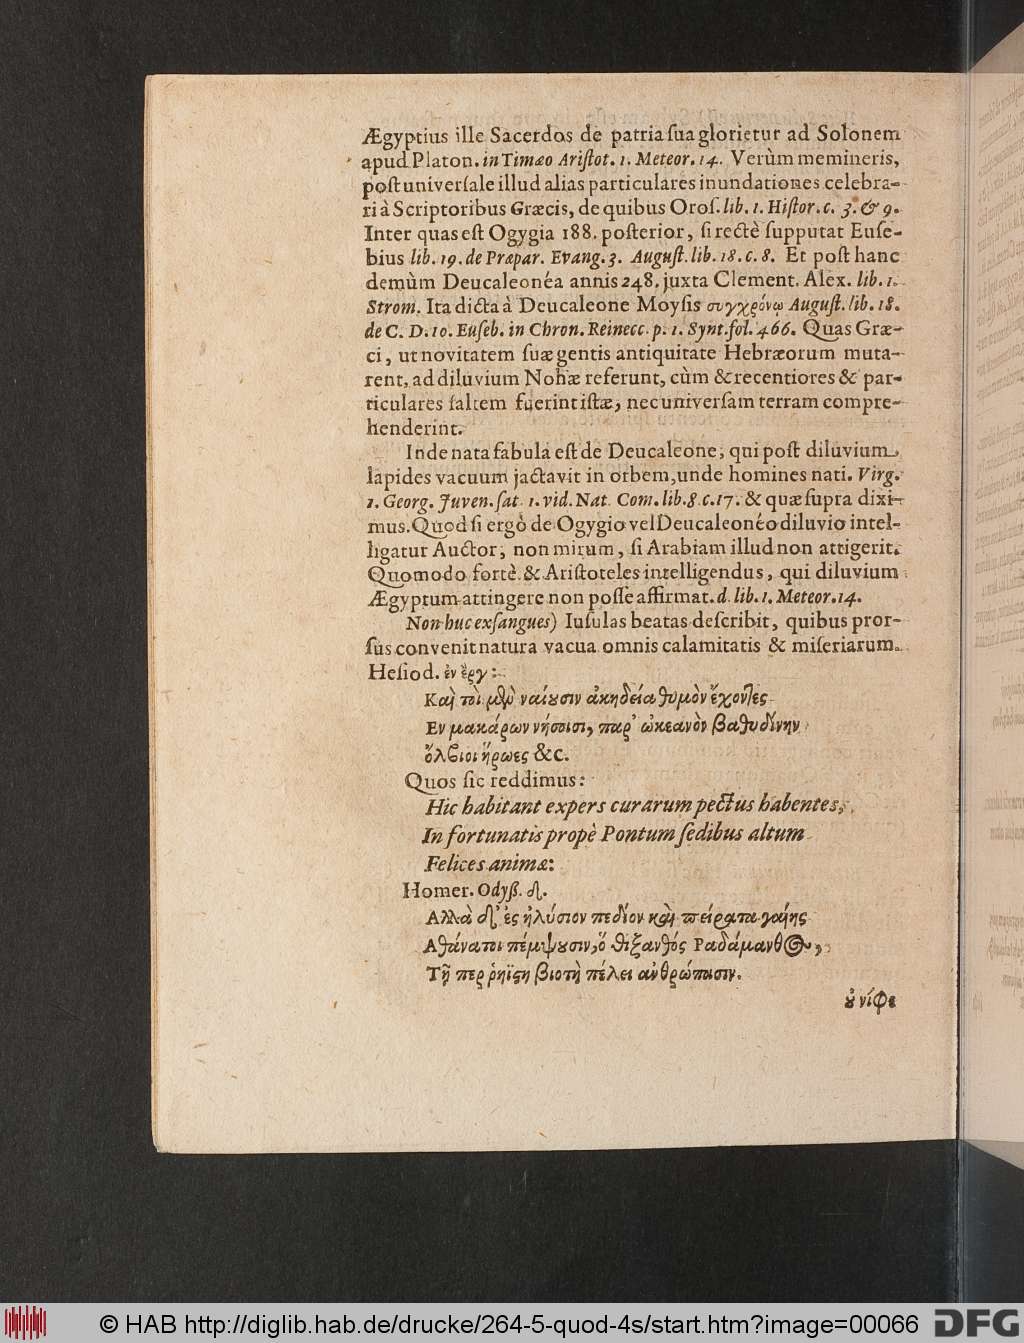 Ægyptius ille Sacerdos de patria ſua glorietur ad Solonem
apud Platon. in Timæo Ariſtot. 1. Meteor. 14. Verùm memineris,
poſt univerſale illud alias particulares inundationes celebra-
ri à Scriptoribus Græcis, de quibus Oroſ. lib. 1. Hiſtor. c. 3. & 9.
Inter quas eſt Ogygia 188. poſterior, ſi rectè ſupputat Euſe-
bius lib. 19. de Præpar. Evang. 3. Auguſt. lib. 18. c. 8. Et poſt hanc
demùm Deucaleonéa annis 248. juxta Clement. Alex. lib. 1.
Strom. Ita dicta à Deucaleone Moyſis συγχρόνῳ Auguſt. lib. 18.
de C. D. 10. Euſeb. in Chron. Reinecc. p. 1. Synt. fol. 466. Quas Græ-
ci, ut novitatem ſuæ gentis antiquitate Hebræorum muta-
rent, ad diluvium Nohæ referunt, cùm & recentiores & par-
ticulares ſaltem fuerint iſtæ, nec univerſam terram compre-
henderint.
Inde nata fabula eſt de Deucaleone, qui poſt diluvium
lapides vacuum jactavit in orbem, unde homines nati. Virg.
1. Georg. Juven. ſat. 1. vid. Nat. Com. lib. 8. c. 17. & quæ ſupra dixi-
mus. Quod ſi ergò de Ogygio vel Deucaleonéo diluvio intel-
ligatur Auctor, non mirum, ſi Arabiam illud non attigerit.
Quomodo fortè & Ariſtoteles intelligendus, qui diluvium
Ægyptum attingere non poſſe affirmat. d. lib. 1. Meteor. 14.
Non huc exſangues) Iuſulas beatas deſcribit, quibus pror-
ſus convenit natura vacua omnis calamitatis & miſeriarum.
Heſiod. ἐν ἔργ:
Καὶ τοὶ μὲν ναίουσιν ἀκηδέα θυμὸν ἔχοντες
Εν μακάρων νήσοισι, παρ' ὠκεανὸν βαθυδίνην
ὄλβιοι ἥρωες &c.
Quos ſic reddimus:
Hic habitant expers curarum pectus habentes,
In fortunatis propè Pontum ſedibus altum
Felices animæ:
Homer. Odyſſ. δ.
Αλλὰ δ' ἐς ἠλύσιον πεδίον καὶ πείρατα γαίης
Αθάνατοι πέμψουσιν, ὅθι ξανθός Ραδάμανθος,
Τῇ περ ῥηΐςη βιοτὴ πέλει ἀνθρώποισιν.
οὐ νίφε
© HAB http://diglib.hab.de/drucke/264-5-quod-4s/start.htm?image=00066
DFG